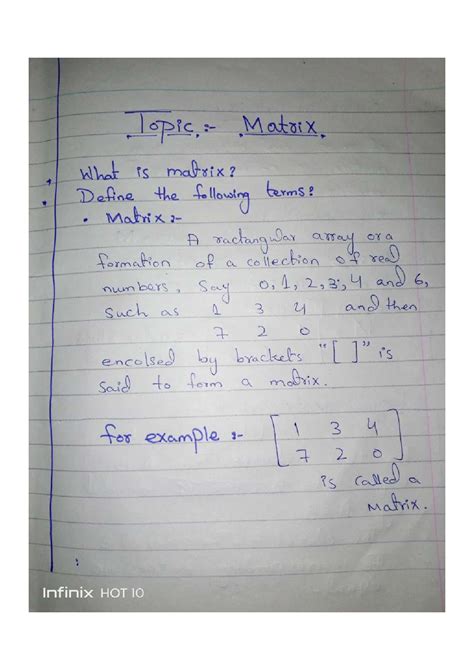 Topic :- Matrix
What is matrix?
Define the following terms:
• Matrix :-
A ractangular array or a
formation of a collection of real
numbers, Say 0, 1, 2, 3, 4 and 6,
such as 1 3 4 and then
7 2 0
encolsed by brackets "[ ]" is
said to form a matrix.
for example :- [ 1 3 4
7 2 0 ]
is called a
Matrix.
Infinix HOT 10